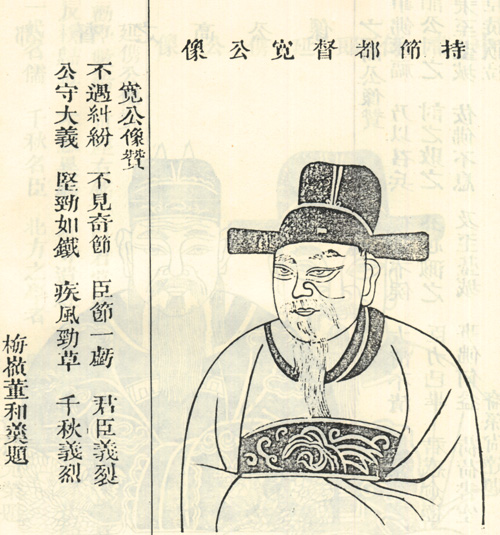 持節都督寬公像
寬公像贊
不遇糾紛 不見奇節 臣節一虧 君臣義裂
公守大義 堅勁如鐵 疾風勁草 千秋義烈
梅嶺董和羹題